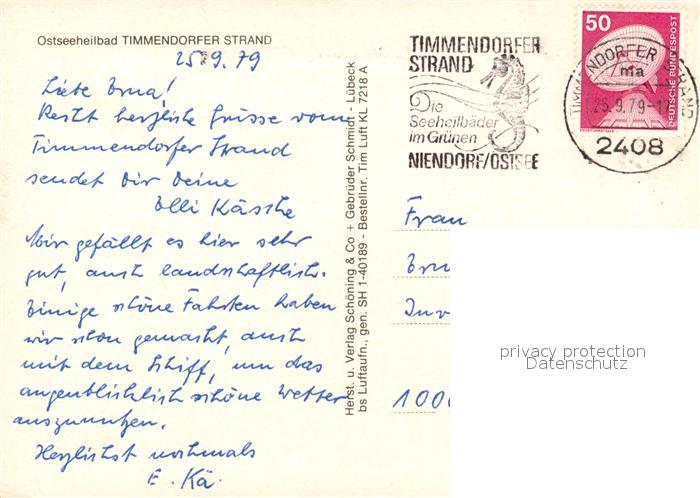 Ostseeheilbad TIMMENDORFER STRAND
25.9.79
Liebe Erna!
Recht herzliche Grüsse vom
Timmendorfer Strand
sendet Dir Deine
Elli Käschke
Mir gefällt es hier sehr
gut, auch landschaftlich.
Einige schöne Fahrten haben
wir schon gemacht, auch
mit dem Schiff, um das
augenblicklich schöne Wetter
auszunutzen.
Herzlichst nochmals
E. Kä.
Herst. u. Verlag Schöning & Co + Gebrüder Schmidt - Lübeck
bs Luftaufn., gen. SH 1-40189 - Bestellnr. Tim Luft KL 7218 A
TIMMENDORFER
STRAND
Die
Seeheilbäder
im Grünen
NIENDORF/OSTSEE
50
DEUTSCHE BUNDESPOST
NDORFER
ma
25.9.79-17
2408
Frau
privacy protection
Datenschutz